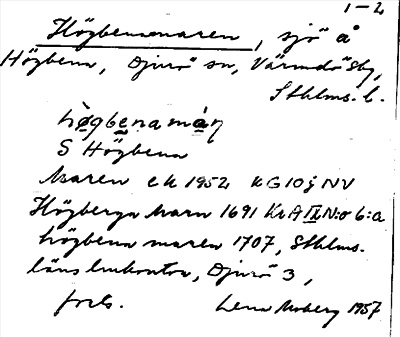 1-2
Högbenamaren, sjö å
Högbena, Djurö sn, Värmdö sby,
Sthlms l.
hø̀gbenamàṛṇ
S Högbena
Maren ek 1952 kG10j NV
Högberga Marn 1691 Kr A IX No 6:a
högbena maren 1707, Sthlms.
läns lmkontor, Djurö 3,
forts. Lena Moberg 1957